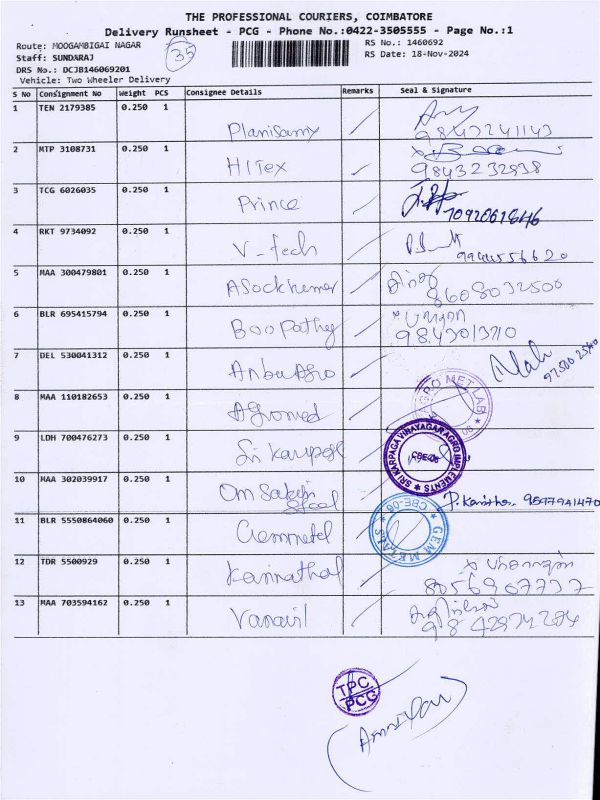 THE PROFESSIONAL COURIERS, COIMBATORE
Delivery Runsheet - PCG - Phone No.:0422-3505555 - Page No.:1
Route: MOOGAMBIGAI NAGAR
35
RS No.: 1460692
Staff: SUNDARAJ
RS Date: 18-Nov-2024
DRS No.: DCJB146069201
Vehicle: Two Wheeler Delivery
S No Consignment No Weight PCS Consignee Details Remarks Seal & Signature
1 TEN 2179385 0.250 1
Planisamy 9843241143
2 MTP 3108731 0.250 1
HITex 9843232838
3 TCG 6026035 0.250 1
Prince
4 RKT 9734092 0.250 1
V-tech 9944556620
5 MAA 300479801 0.250 1
ASockkumar 8608032500
6 BLR 695415794 0.250 1
Boopathy
7 DEL 530041312 0.250 1
Anbu Agro
8 MAA 110182653 0.250 1
Agromed
AGRO MET LAB
9 LDH 700476273 0.250 1
Sri Karupa
SRI KARPAGA VINAYAGAR AGRO IMPLEMENTS
CBE-06
10 MAA 302039917 0.250 1
Om Sakthi Steel P. Kanitha. 9597941470
11 BLR 5550864060 0.250 1
Gemmetal
GEM METALS
CBE-06
12 TDR 5500929 0.250 1
Kannathal 8056907737
13 MAA 703594162 0.250 1
Vanavil
TPC
PCG